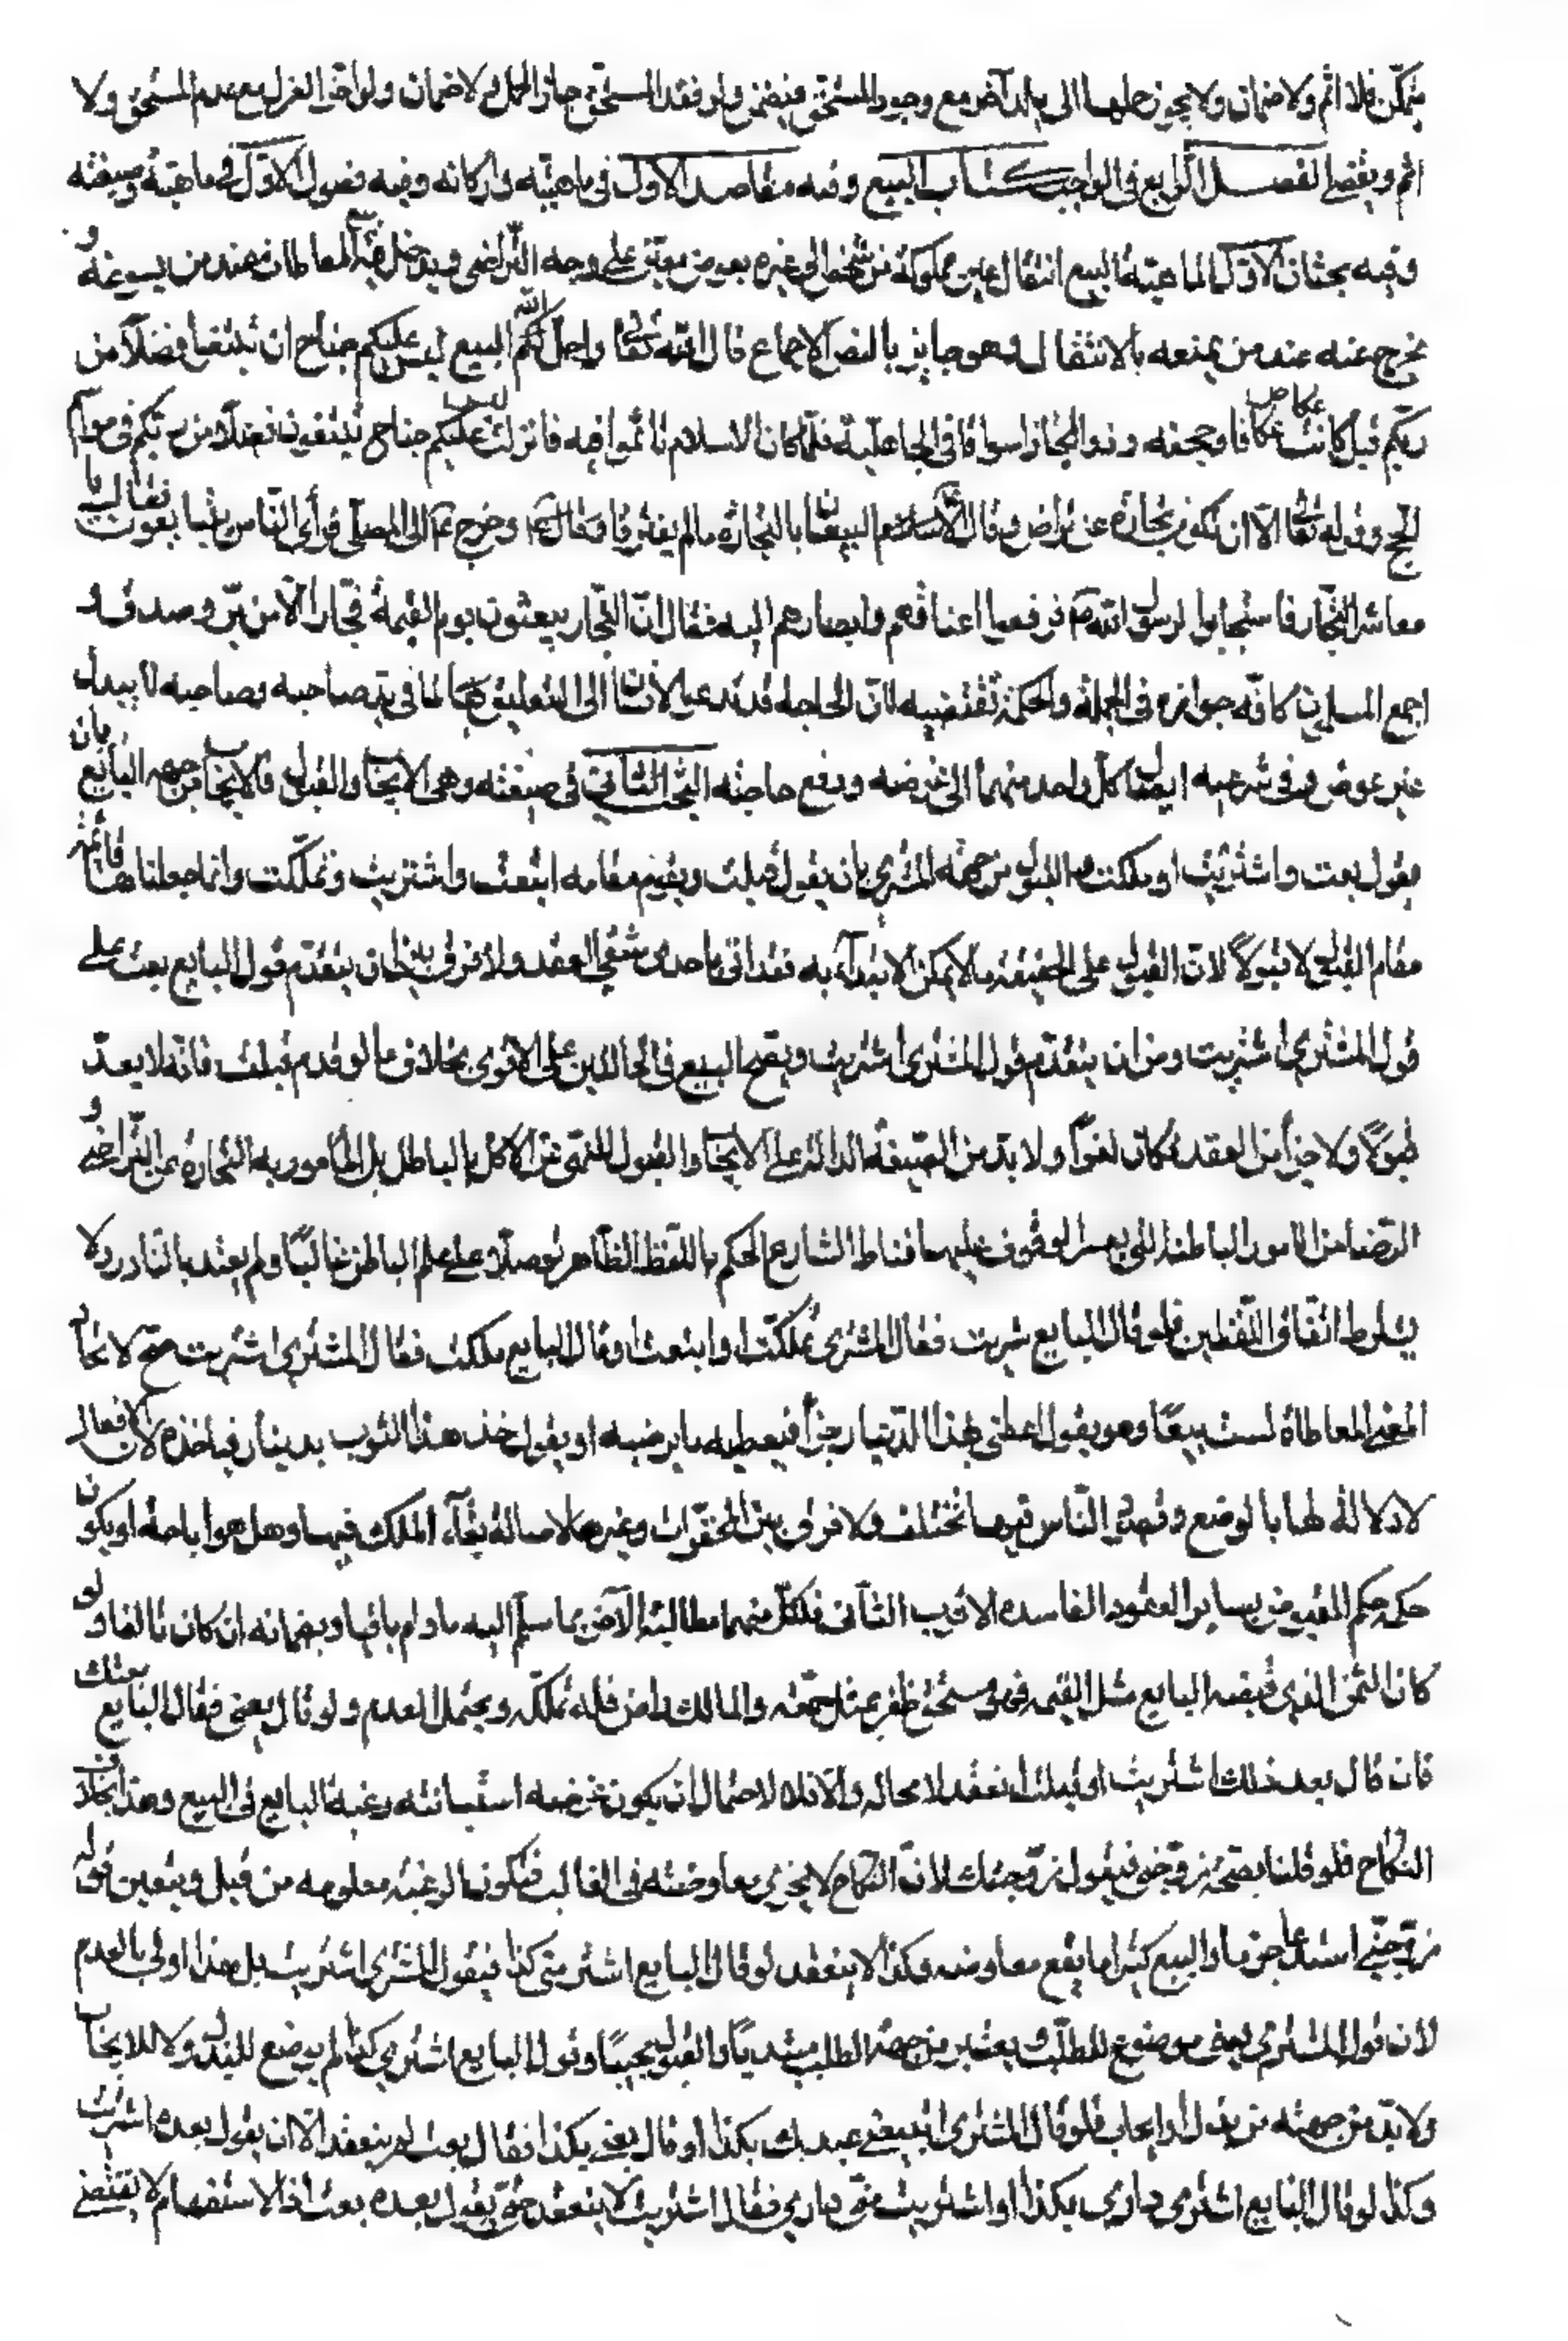 يتمكن فلا اثم ولا ضمان ولا يجوز حملها الى بلد آخر مع وجود المستحق فيضمن ولو فقد المستحق جاز الحمل ولا ضمان ولو اخر العزل مع عدم المستحق ولا
اثم ويقضي الفصل الرابع في الواجب كتاب البيع وفيه مقاصد الاول في ماهيته واركانه وفيه فصول الاول في ماهيته وصيغته
وفيه بحثان الاول الماهية البيع انتقال عين مملوكة من شخص الى غيره بعوض معين على وجه التراضي ويدخل فيه المعاطات عند من يسوغه و
يخرج عنه عند من يمنعه بالانتقال وهو جايز بالنص والاجماع قال الله تعالى واحل الله البيع ليس عليكم جناح ان تبتغوا فضلاً من
ربكم قيل كانت عكاظ ومجنة وذو المجاز اسواقا في الجاهلية فلما كان الاسلام تأثموا فيه فانزلت ليس عليكم جناح تبتغون فضلا من ربكم في مواسم
الحج وقوله تعالى الا ان تكون تجارة عن تراض وقال البيعان بالخيار ما لم يفترقا وقال وخرج الى المصلى فرأى الناس يتبايعون فقال يا
معاشر التجار فاستجابوا لرسول الله فرفعوا اعناقهم وابصارهم اليه فقال ان التجار يبعثون يوم القيمة فجارا الا من بر وصدق و
اجمع المسلمين كافه جوازه في الجملة والحكمة تقتضيه لان الحاجة قد تدعو الانسان الى التعليق بما في يد صاحبه وصاحبه لا يبدله
غير عوض وفي شرعيه ايصال كل واحد منهما الى غرضه ودفع حاجته البحث الثاني في صيغته وهي الايجاب والقبول فالايجاب من جهه البايع بان
يقول بعت واشتريت او ملكت والقبول من جهة المشتري بان يقول قبلت ويقوم مقامه ابتعت واشتريت وتملكت وانما جعلناها قائمة
مقام القبول لا قبولاً لان القبول على الحقيقه ما لا يمكن الابتداء به فقد اتى باحدى شقي العقد ولا فرق بين ان يتقدم قول البايع بعت على
قول المشتري اشتريت وبين ان يتقدم قول المشتري اشتريت ويصح البيع في الحالين على الاقوى بخلاف ما لو قدم قبلت فانه لا يعد
قبولاً ولا جزأ من العقد فكان لغواً ولا بد من الصيغة الدالة على الايجاب والقبول للنهي عن الاكل بالباطل بل المأمور به التجارة عن التراضي و
الرضا من الامور الباطنه التي يعسر الوقوف عليها فناط الشارع الحكم باللفظ الظاهر توصلا على علم الباطن غالبًا ولم يعتد بالنادر ولا
يشترط اتفاق اللفظين فلو قال البايع شريت فقال المشتري تملكت او ابتعت او قال البايع ملكت فقال المشتري اشتريت صح لاتحاد
المعنى المعاطاة ليست بيعًا وهو يقول اعطني بهذا الدينار خبزاً فيعطيه ما يرضيه او يقول خذ هذا الثوب بدينار فياخذه لان افعال
لا دلالة لها بالوضع وقصود الناس فيها تختلف ولا فرق بين المحقرات وغيرها لاصالة بقاء الملك فيها وهل هو اباحة او يكون
حكمه حكم المقبوض بساير العقود الفاسده الاقرب الثاني فلكل منهما مطالبة الاخر بما سلم اليه ما دام باقيا وبضمانه ان كان تالفا ولو
كان الثمن الذي قبضه البايع مثل القيمه فهو مستحق ظفر بمثل حقه والمالك راض فله تملكه ويحتمل العدم ولو قال بعني فقال البايع بعتك
فان قال بعد ذلك اشتريت او قبلت انعقد لا محاله والا فلا لاحتمال ان يكون غرضه استبانته رغبة البايع في البيع وهذا بخلاف
النكاح فلو قلنا بصحة زوجني فيقول زوجتك لان النكاح لا يجري معاوضته في الغالب فيكون الرغبة معلومه من قبل ويتعين قوله
زوجني استدعاء جزما والبيع كثيرا ما يقع معاوضه وكذا لا ينعقد لو قال البايع اشتر مني كذا فيقول المشتري اشتريت بل هذا اولى بالعدم
لان قول المشتري بعني موضوع للطلب ويعتبر من جهة الطلب مبتدياً والقبول مجيبًا وقول البايع اشتر مني كذا لم يوضع للبذل ولا للايجاب
ولا بد من جهته من بذل او ايجاب فلو قال المشتري اتبيعني عبدك بكذا او قال بعني بكذا فقال بعت لم ينعقد الا ان يقول بعده اشتريت
وكذا لو قال البايع اشتري داري بكذا او اشتريت مني داري فقال اشتريت لا ينعقد حتى يقول بعده بعت اذ الاستفهام لا يقتضي